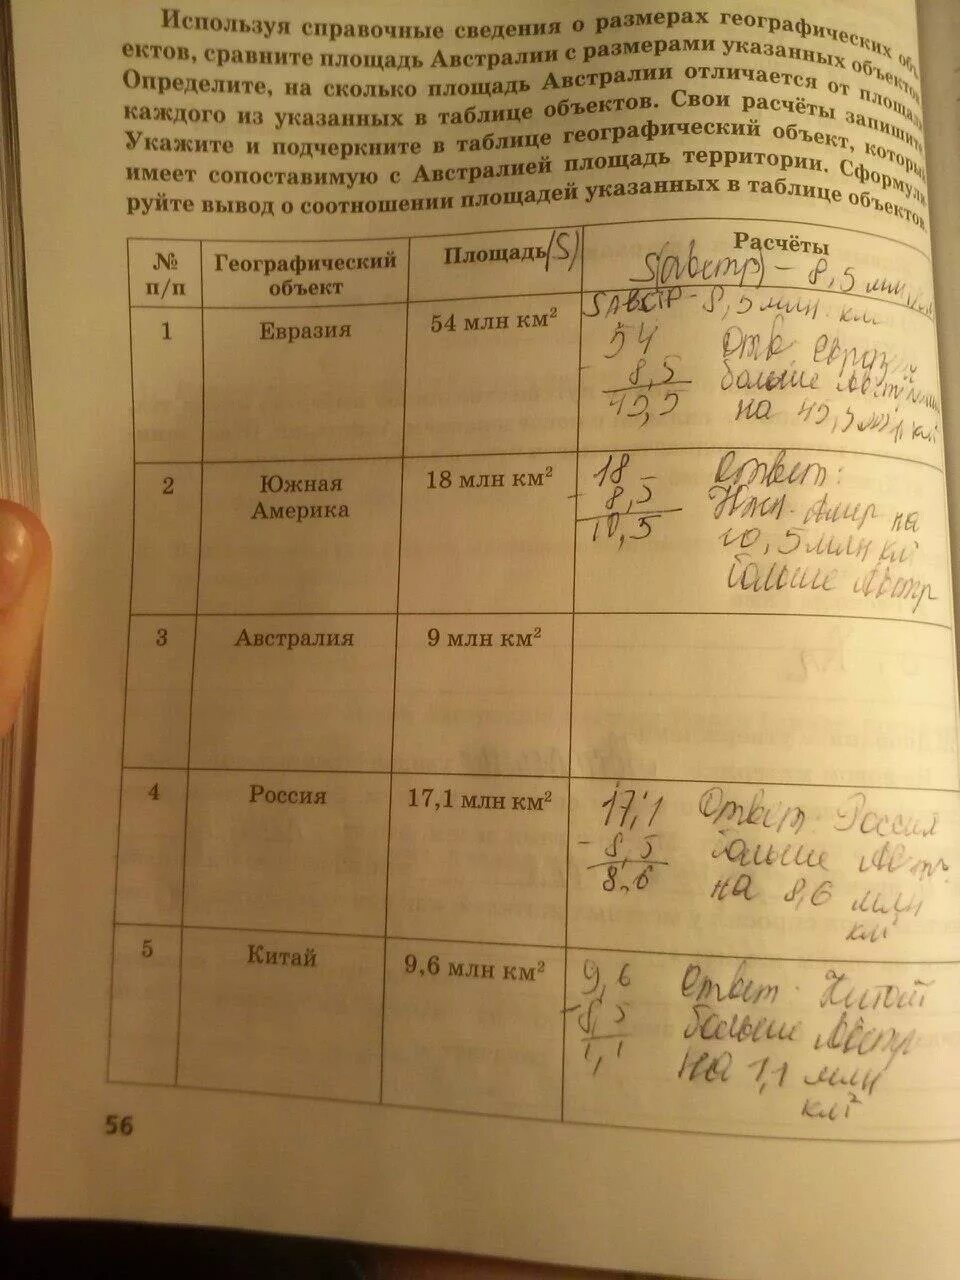 Используя справочные сведения о размерах географических объ-
ектов, сравните площадь Австралии с размерами указанных объектов.
Определите, на сколько площадь Австралии отличается от площади
каждого из указанных в таблице объектов. Свои расчёты запишите.
Укажите и подчеркните в таблице географический объект, который
имеет сопоставимую с Австралией площадь территории. Сформули-
руйте вывод о соотношении площадей указанных в таблице объектов.
№ п/п
Географический объект
Площадь (S)
Расчёты
S(австр) - 8,5 млн
1
Евразия
54 млн км²
SАВСТР - 8,5 млн. км
54
- 8,5
45,5
Отв Евразия
больше Австралии
на 45,5 млн км²
2
Южная
Америка
18 млн км²
18
- 8,5
10,5
Ответ:
Южн. Амер на
10,5 млн км²
больше Австр
3
Австралия
9 млн км²
4
Россия
17,1 млн км²
17,1
- 8,5
8,6
Ответ. Россия
больше Австр.
на 8,6 млн
км²
5
Китай
9,6 млн км²
9,6
- 8,5
1,1
Ответ. Китай
больше Австр
на 1,1 млн
км²
56